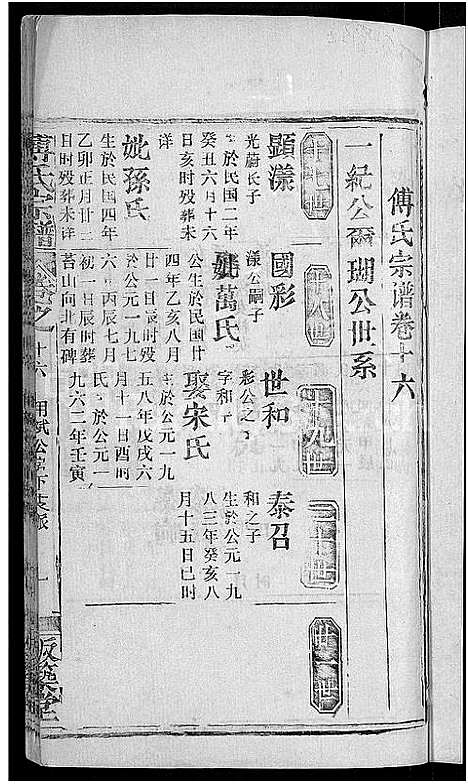 傅氏宗谱卷十六
一紀公裔瑚公世系
十七世
十八世
十九世
二十世
廿一世
顯漾
光蔚长子
生於民国二年
癸丑六月十六
日亥时殁葬未
详
妣孫氏
生於民国四年
乙卯正月廿二
日时殁葬未详
國彩
漾公嗣子
妣萬氏
公生於民国廿
四年乙亥八月
廿一日辰时殁
於公元一九七
六年丙辰七月
初一日辰时葬
苔山向北有碑
世和
彩公之子
字和
娶宋氏
生於公元一九
五八年戊戌六
月十一日酉时
氏生於公元一
九六二年壬寅
泰召
和之子
生於公元一九
八三年癸亥八
月十五日巳时
傅氏宗譜
卷之十六
一
版築堂